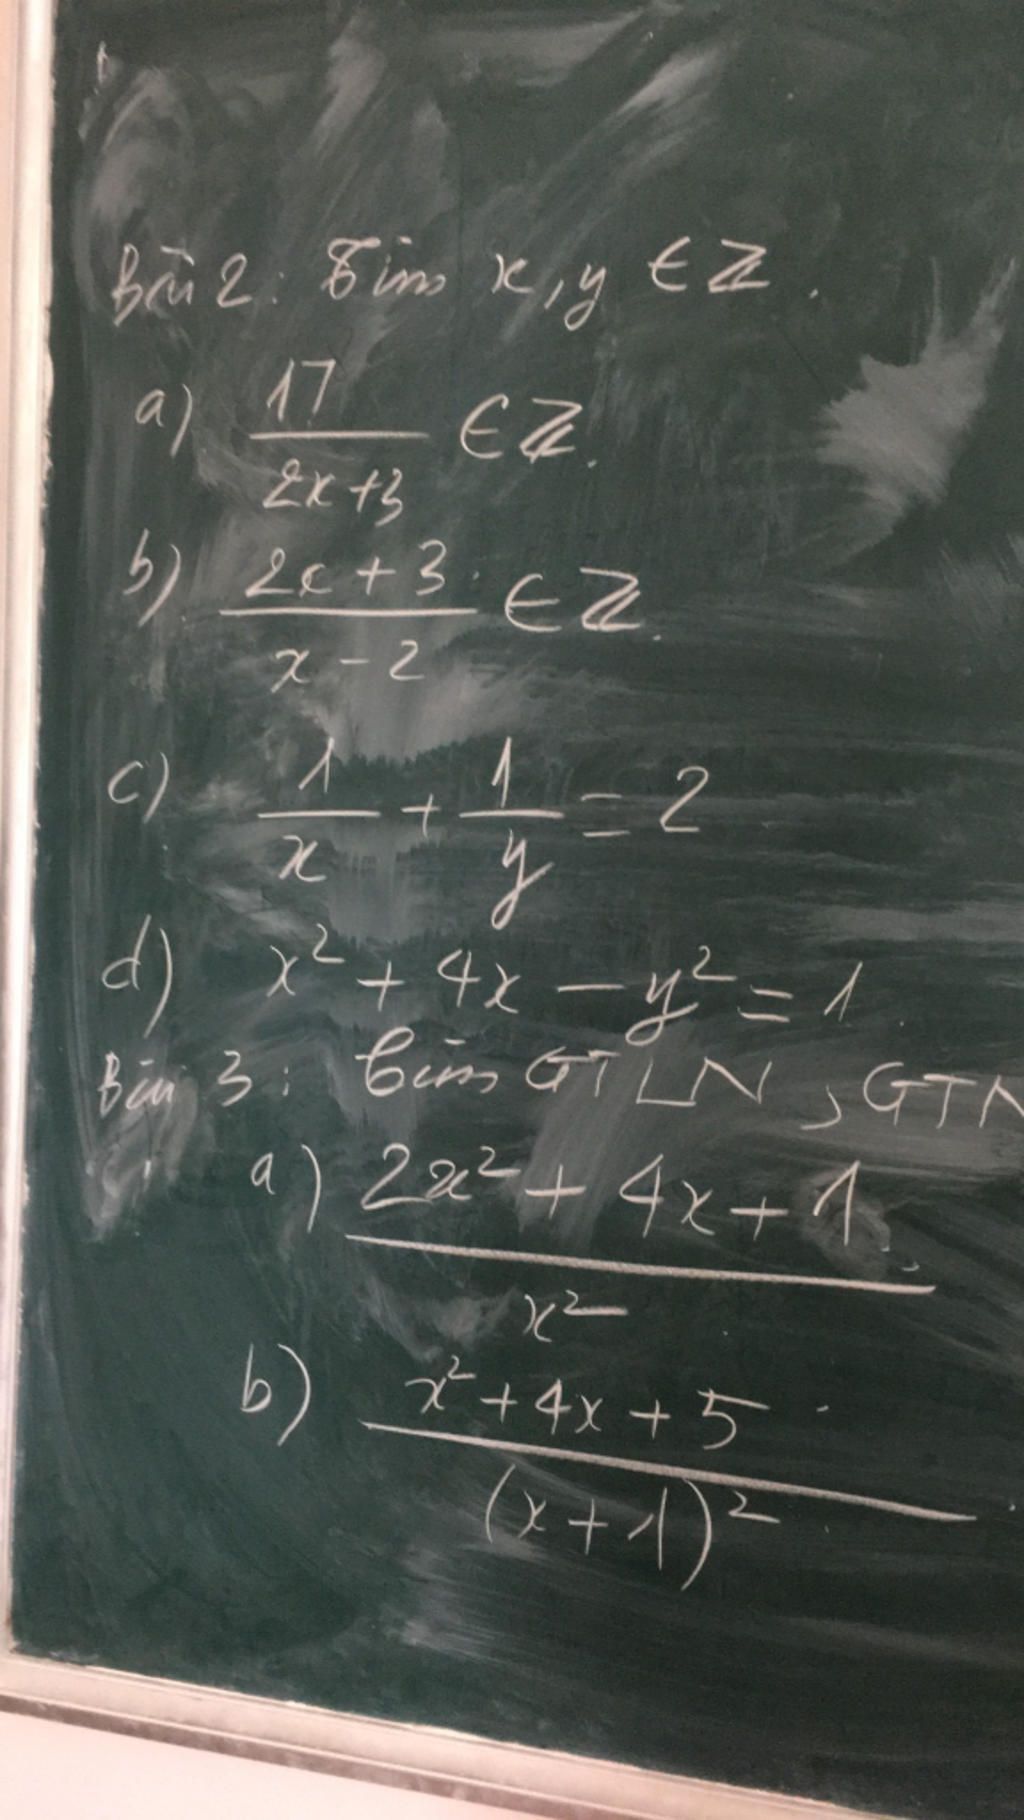 Bài 2: Tìm x, y ∈ Z.
a) 17/(2x+3) ∈ Z.
b) (2x+3)/(x-2) ∈ Z.
c) 1/x + 1/y = 2
d) x² + 4x - y² = 1.
Bài 3: Tìm GTLN, GTN
a) (2x² + 4x + 1)/x²
b) (x² + 4x + 5)/(x+1)²